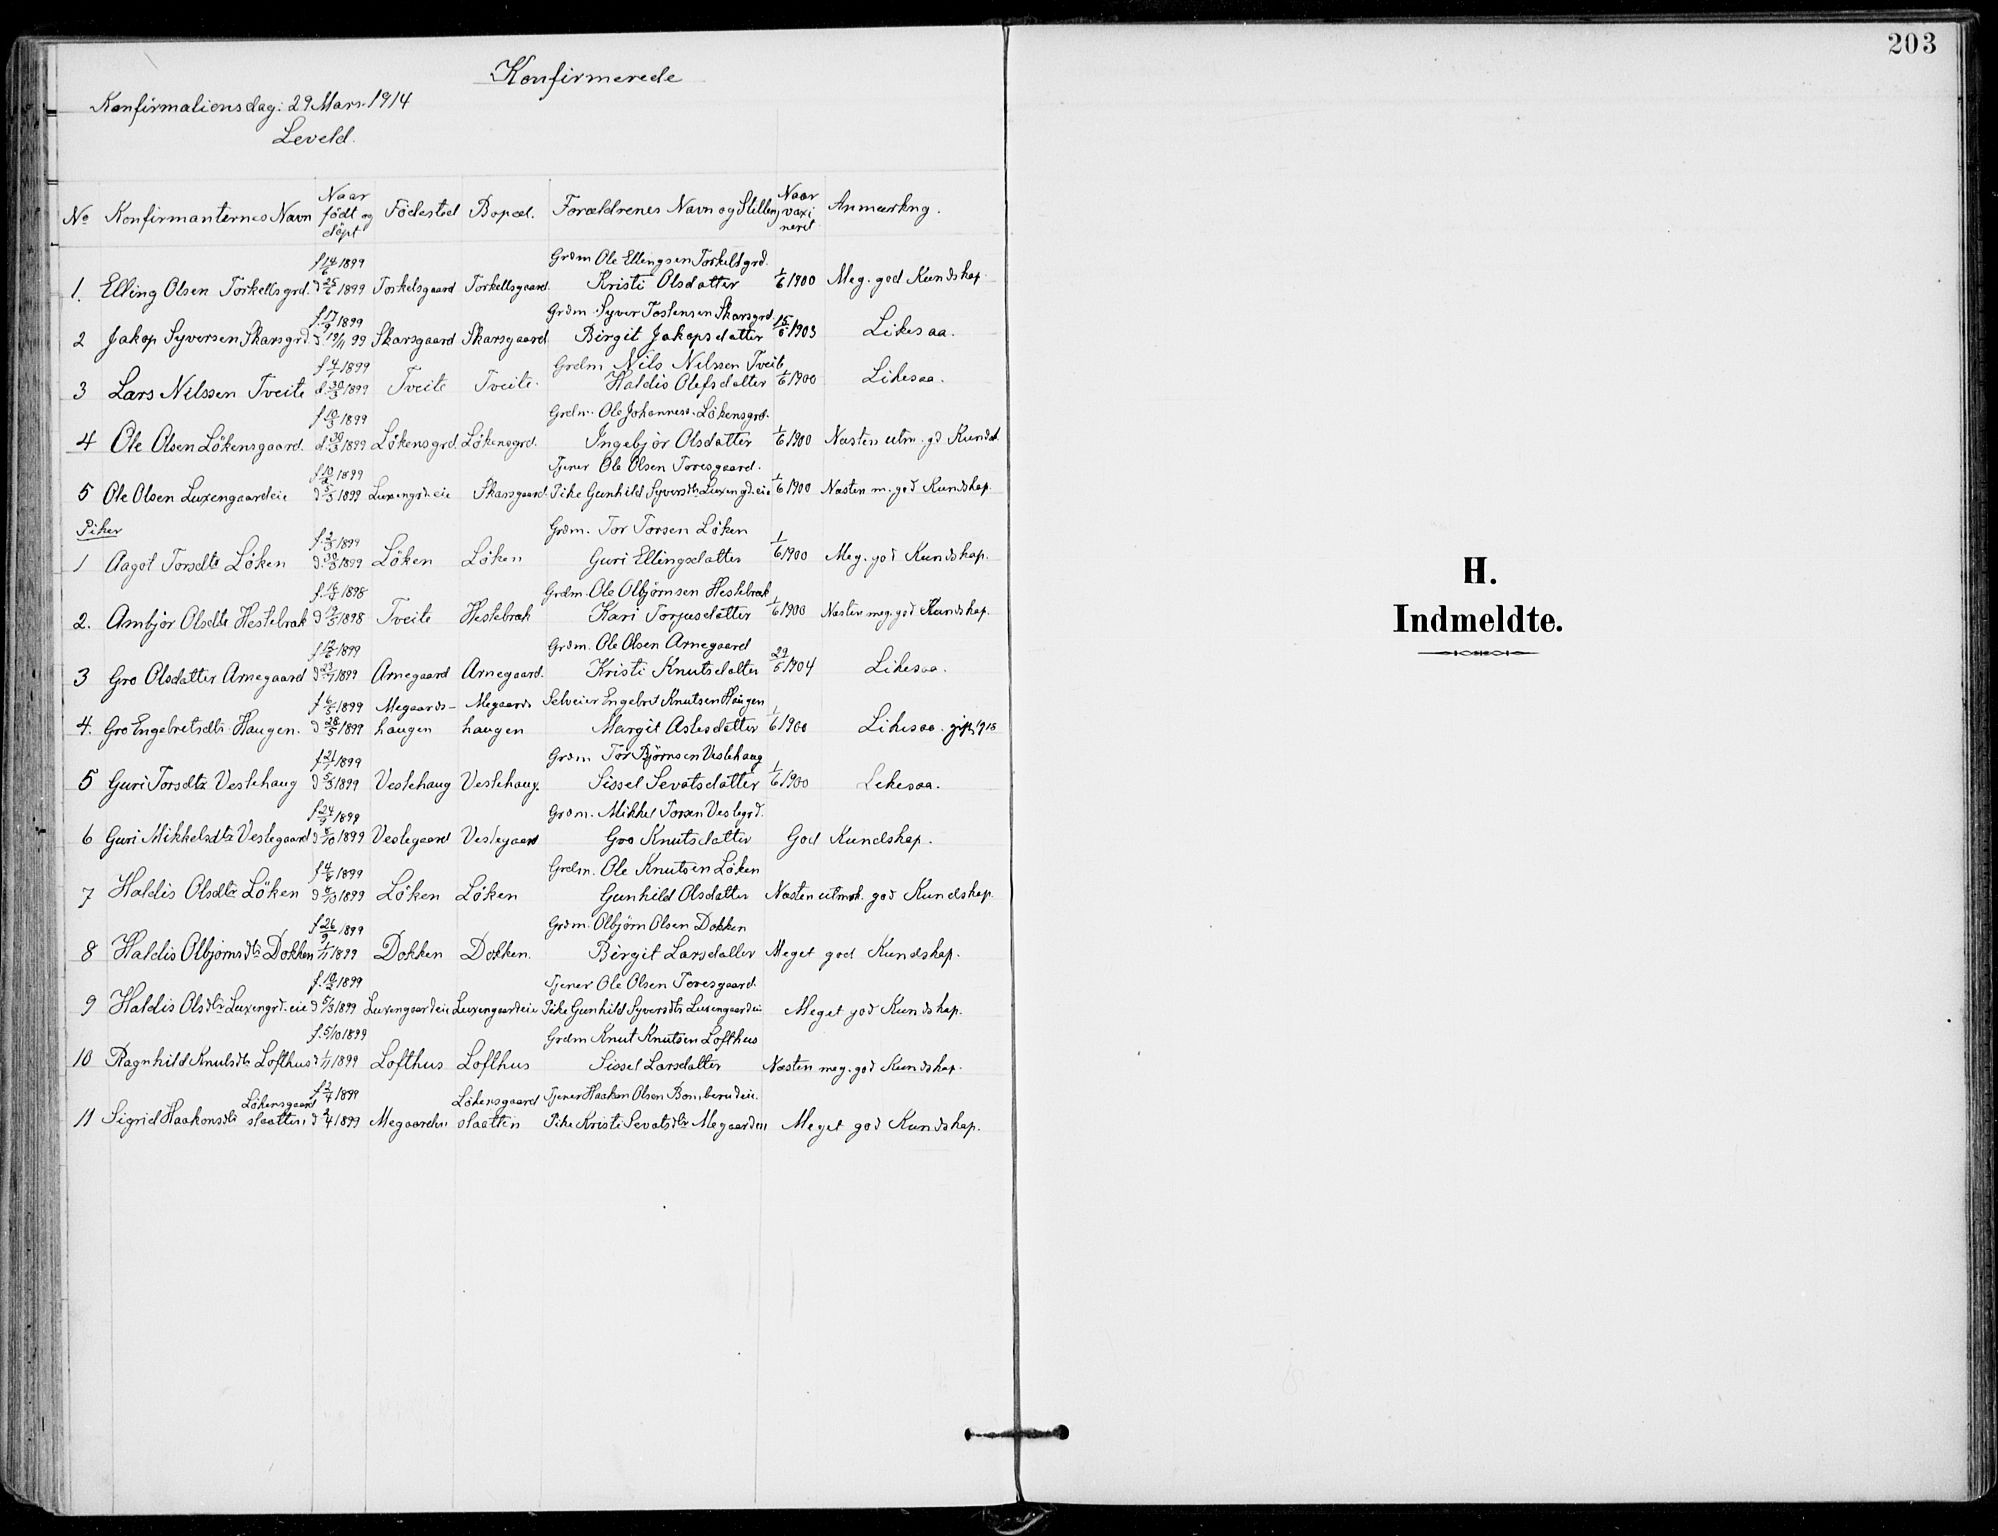 Konfirmerede
Konfirmationsdag: 29 Mars 1914
Leveld.
No Konfirmanternes Navn Naar födt og döpt Födested Boped. Forældrenes Navn og Stilling Naar vaxineret Anmærkng.
f. 14/6 1899 Grdm Ole Ellengsen Torkelsgrd.
1. Elling Olsen Torkellsgrd. d 25/6 1899 Torkelsgaard Torkellsgaard Kristi Olsdatter 1/6 1900 Meg. god Kundskap.
f. 17/9 1899 Grdm. Syver Tostensen Skarsgrd.
2 Jakop Syversen Skarsgrd. d 19/11 99 Skarsgaard Skarsgaard Birgit Jakopsdatter 15/6 1903 Likesaa.
f 4/1 1899 Grdm Nils Nilssen Tveito
3 Lars Nilssen Tveite d. 30/3 1899 Tveite Tveite. Haldis Olefsdatter 1/6 1900 Likesaa.
f 10/3 1899 Grdm. Ole Johanness. Lökensgrd.
4 Ole Olsen Lökensgaard. d. 30/3 1899 Lökensgrd. Lökensgrd. Ingebjör Olsdatter 1/6 1900 Næsten utm. gd Kundsk.
f 10/2 1899 Tjener Ole Olsen Toresgaard.
5 Ole Olsen Luxengaardeie d 5/3 1899 Luxengrd.eie Skarsgaard Pike Gunhild Syversdtr. Luxengd.eie 1/6 1900 Næsten m. god Kundskap.
Piker
f. 2/3 1899 Grdm. Tor Torsen Löken
1 Aagot Torsdtr Löken d. 30/3 1899 Löken Löken Guri Ellingsdatter 1/6 1900 Meg. god Kundskap.
1898 Grdm. Ole Olbjörnsen Hestebrak
2. Ambjör Olsdtr Hestebrak 1898 Tveite Hestebrak Kari Torjusdatter 1/6 1900 Næsten meg. god Kundskap.
1899 Grdm. Ole Olsen Arnegaard
3 Gro Olsdatter Arnegaard 1899 Arnegaard Arnegaard. Kristi Knutsdatter 29/5 1904 Likesaa.
f 6/5 1899 Megaards- Megaards Selveier Engebret Knutsen Haugen
4. Gro Engebretsdtr. Haugen. d 28/5 1899 haugen haugen Margit Aslesdatter 1/6 1900 Likesaa. gift 1918
f 21/1 1899 Grdm Tor Björnsen Vestehaug
5 Guri Torsdtr Vestehaug d 5/3 1899 Vestehaug Vestehaug. Sissel Sevatsdatter 1/6 1900 Likesaa.
f 24/9 1899 Grdm. Mikkel Torsen Vestegrd.
6 Guri Mikkelsdtr Vestegaard d 8/10 1899 Vestegaard Vestegaard Gro Knutsdatter God Kundskap.
1899 Grdm. Ole Knutsen Löken
7 Haldis Olsdtr Löken 1899 Löken Löken Gunhild Olsdatter Næsten utmrk. god Kundskap.
f 26/9 1899 Grdm. Olbjörn Olsen Dokken
8 Haldis Olbjörnsdtr Dokken 1/11 1899 Dokken Dokken. Birgit Larsdatter Meget god Kundskap.
f. 10/2 1899 Tjener Ole Olsen Toresgaard.
9 Haldis Olsdtr Luxengrd.eie d 5/3 1899 Luxengaardeie Luxengaardeie Pike Gunhild Syversdtr Luxengaardeie Meget god Kundskap.
f. 5/10 1899 Grdm Knut Knutsen Lofthus
10 Ragnhild Knutsdtr Lofthus d 1/11 1899 Lofthus Lofthus Sissel Larsdatter Næsten meg. god Kundskap.
Lökensgaard 1899 Lökensgaard Tjener Haakon Olsen
11 Sigrid Haakonsdtr slaatten d 2/4 1899 slaatten Pike Kristi Sevatsdtr Meget god Kundskap.
203
H.
Indmeldte.